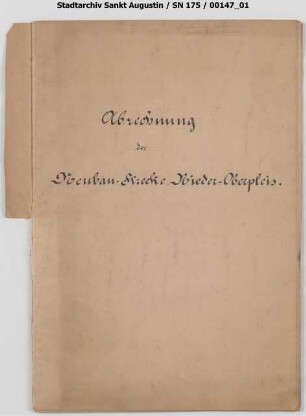 Stadtarchiv Sankt Augustin / SN 175 / 00147_01
Abrechnung
der
Neubau-Strecke Nieder-Oberpleis.